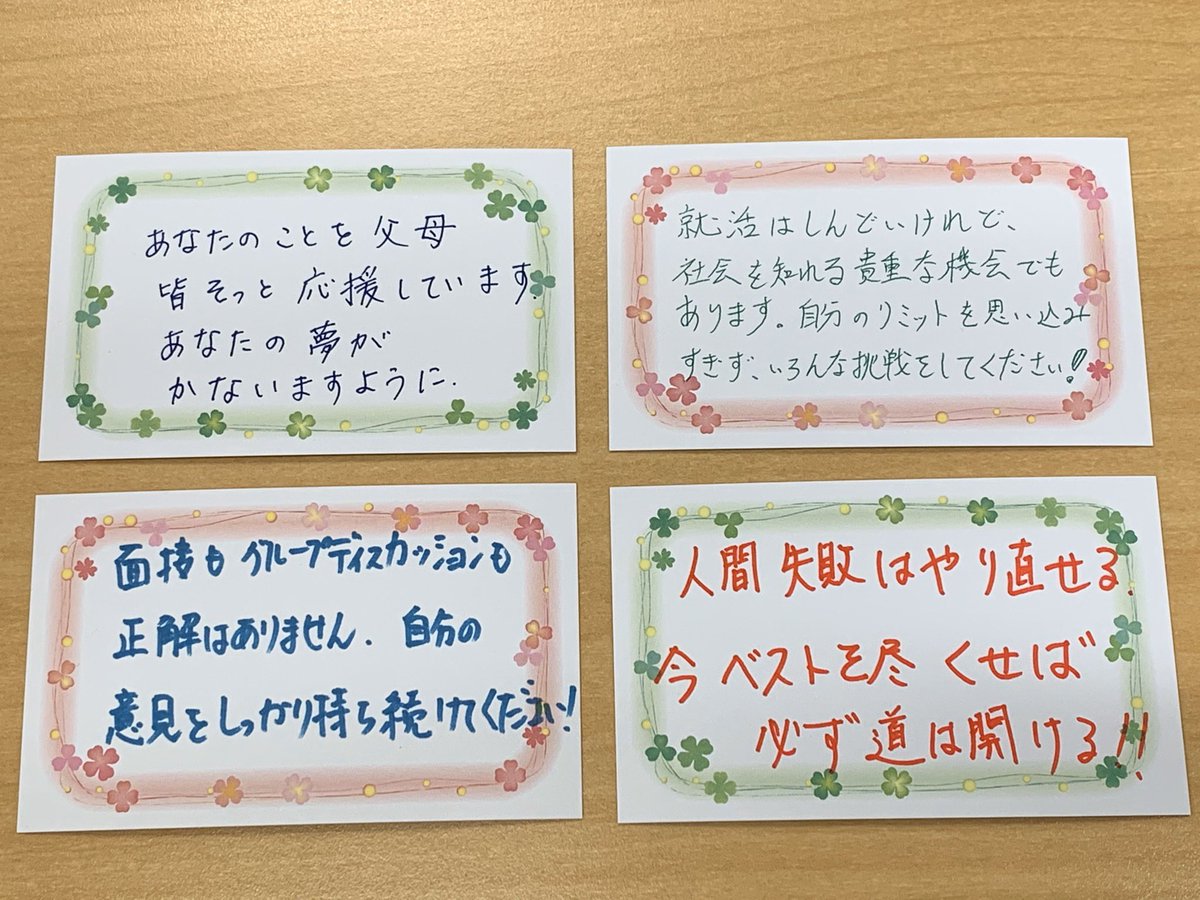 あなたのことを父母
皆そっと応援しています.
あなたの夢が
かないますように.
就活はしんどいけれど、
社会を知れる貴重な機会でも
あります。自分のリミットを思い込み
すぎず、いろんな挑戦をしてください!
面接もグループディスカッションも
正解はありません. 自分の
意見をしっかり持ち続けてください!
人間失敗はやり直せる.
今ベストを尽くせば
必ず道は開ける!!